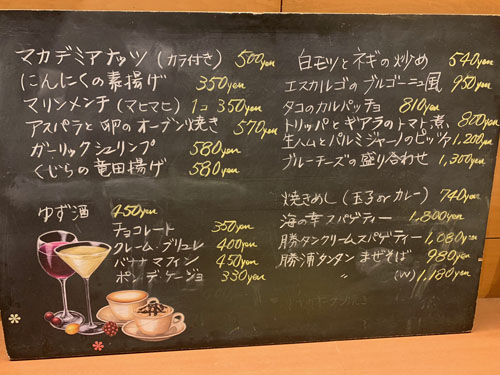 マカデミアナッツ (カラ付き) 500yen
にんにくの素揚げ 350yen
マリンメンチ (マヒマヒ) 1コ 350yen
アスパラと卵のオーブン焼き 570yen
ガーリックシュリンプ 580yen
くじらの竜田揚げ 580yen
ゆず酒 450yen
チョコレート 350yen
クレーム・ブリュレ 400yen
バナナマフィン 450yen
ポンデケージョ 330yen
白モツとネギの炒め 540yen
エスカルゴのブルゴーニュ風 950yen
タコのカルパッチョ 810yen
トリッパとギアラのトマト煮 800yen
生ハムとパルミジャーノのピッツァ 1,200yen
ブルーチーズの盛り合わせ 1,300yen
焼きめし (玉子orカレー) 740yen
海の幸スパゲティー 1,800yen
勝タンクリームスパゲティー 1,080yen
勝浦タンタンまぜそば 980yen
〃 (W) 1,180yen